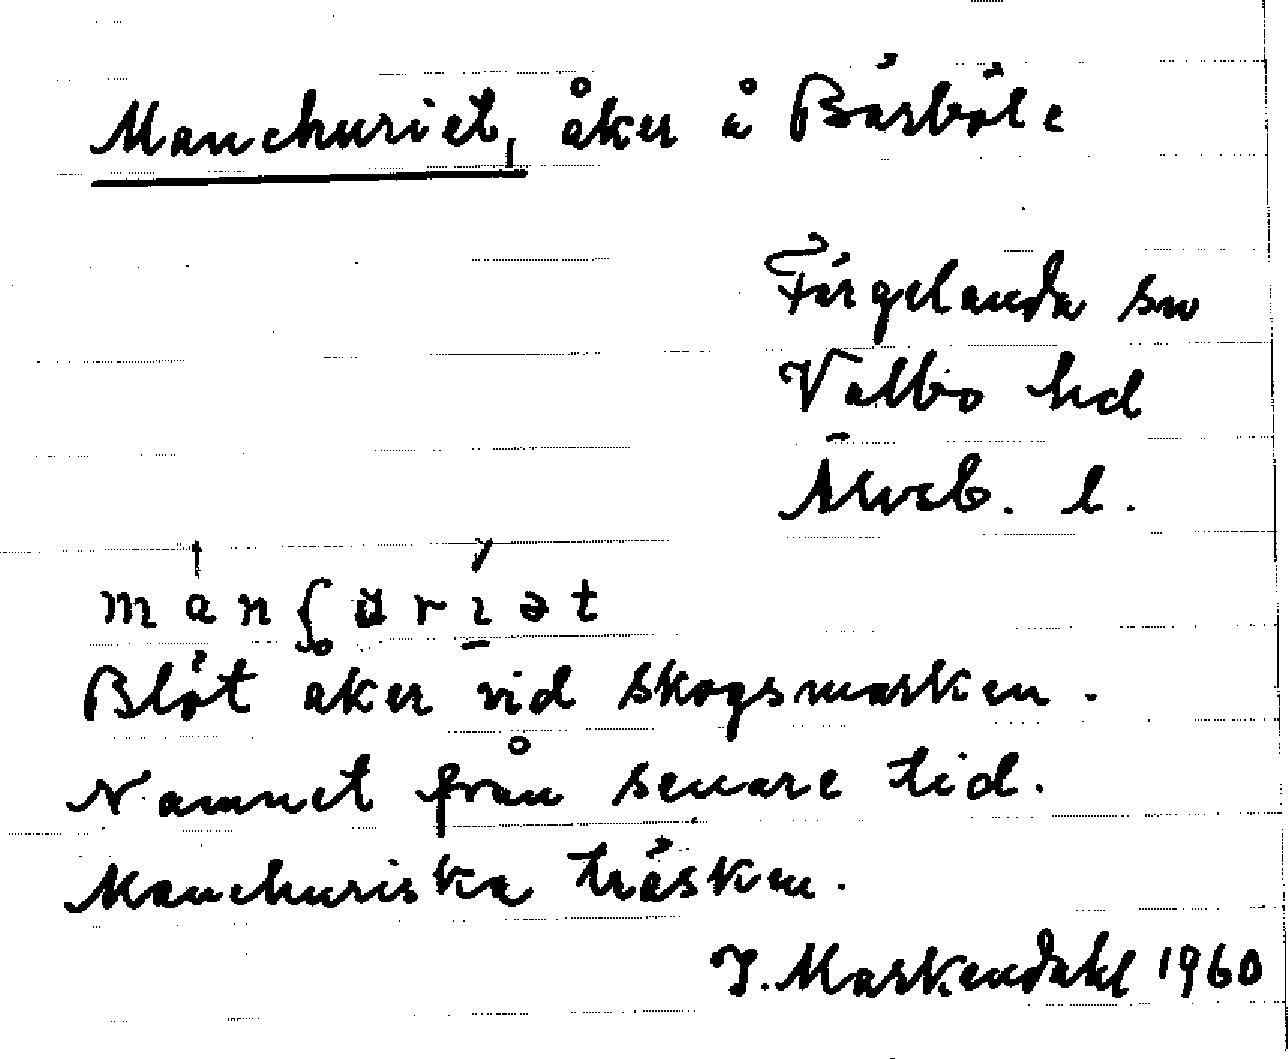 Manchuriet, åker å Bärböle
Färgelanda sn
Valbo hd
Älvsb. l.
Blöt åker vid skogsmarken.
Namnet från senare tid.
Manchuriska träsken.
J. Maskendahl 1960